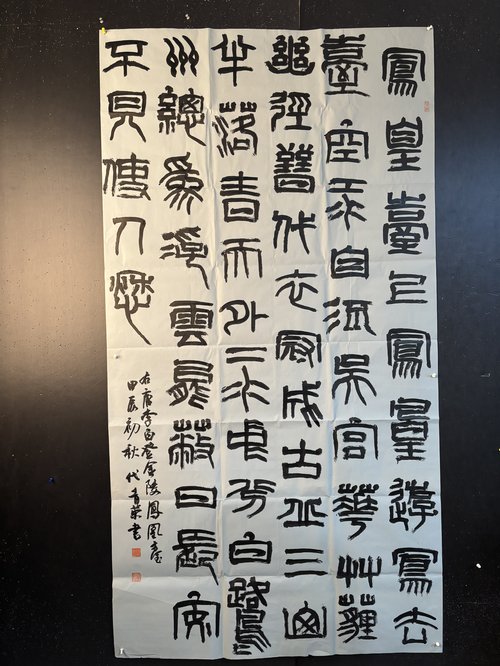 鳳皇臺上鳳皇遊鳳去
臺空江自流吳宮華艸薶
幽徑晉代衣冠成古丘三山
半落青天外二水中分白鷺
州總為浮雲能蔽日長安
不見使人愁
右唐李白登金陵鳳凰臺
甲辰初秋 代青書